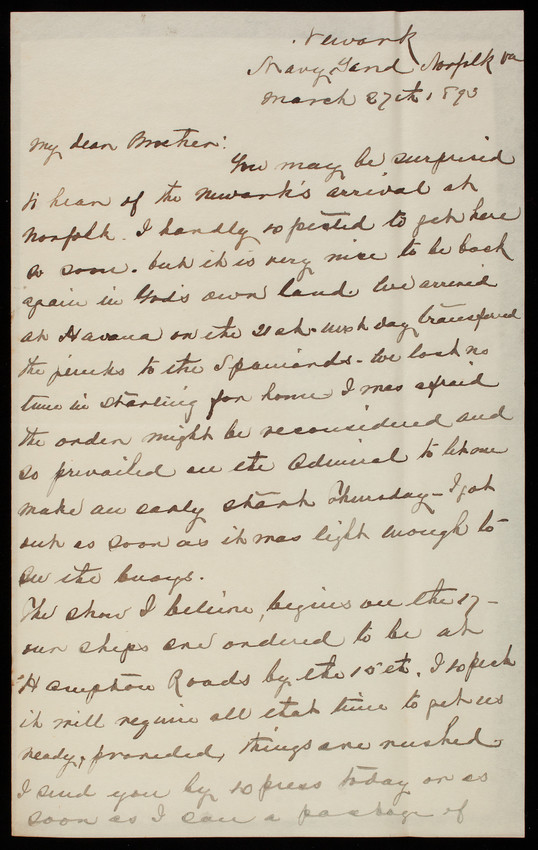 Newark
Navy Yard Norfolk Va
March 27th 1893
My dear Brother:
You may be surprised
to hear of the Newark's arrival at
Norfolk. I hardly expected to get here
so soon. but it is very nice to be back
again in God's own land. We arrived
at Havana on the 21st - next day transfered
the to the Spaniards - We lost no
time in starting for home I was afraid
the order might be reconsidered and
so prevailed on the Admiral to let me
make an early start Thursday - I got
out as soon as it was light enough to
see the buoys.
The show I believe, begins on the 17 -
our ships are ordered to be at
Hampton Roads by the 15th. I expect
it will require all that time to get us
ready, provided, things are rushed.
I send you by express today or as
soon as I can a package of